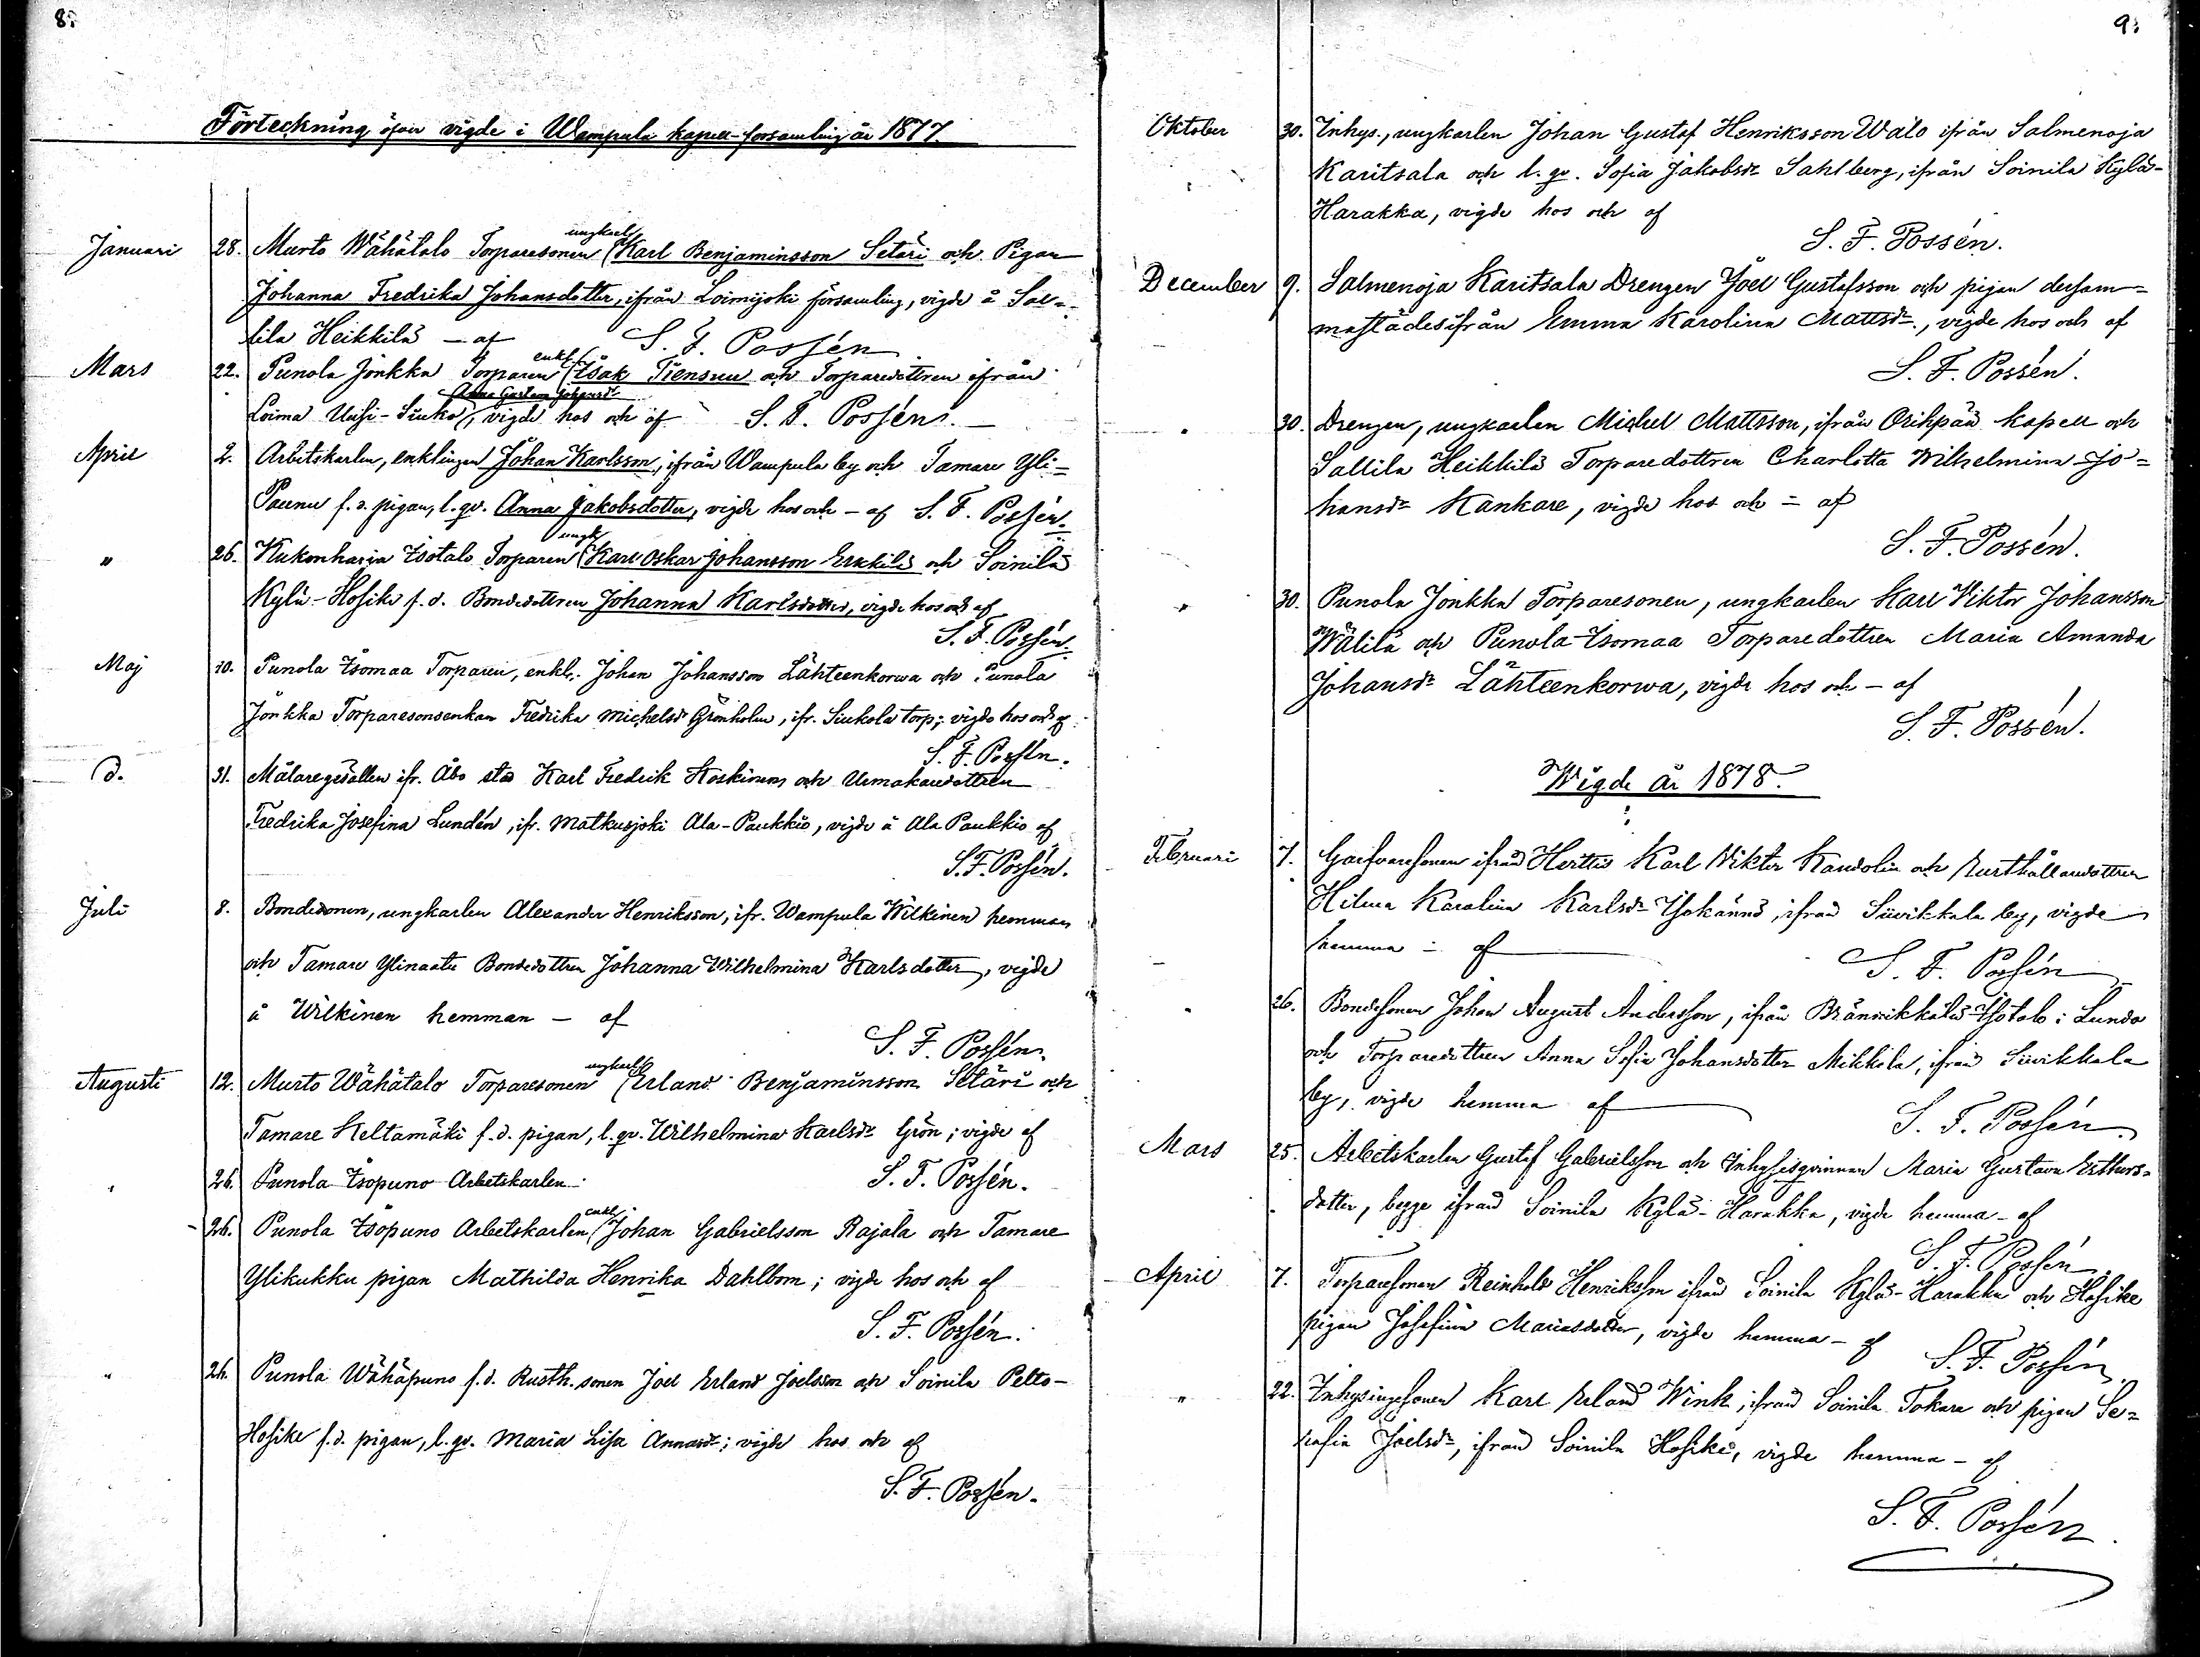 8.
Förteckning öfver vigde i Wampula kapell-församling år 1877.
ungkarl
Januari 28. Murto Wähätalo Torparesonen (Karl Benjaminsson Setäri och Pigan
Johanna Fredrika Johansdotter, ifrån Loimijoki församling, vigde å Sal=
lila Heikkilä – af S. F. Possén
enkl.
Mars 22. Punola Jonkka Torparen (Isak Tiensuu och Torparedottren ifrån
Anna Gustava Johansdr
Loima Uusi-Siuko), vigde hos och af S. F. Possén. –
April 2. Arbetskarlen, enklingen Johan Karlsson, ifrån Wampula by och Tamare Yli=
Paunu f.d. pigan, l. qv. Anna Jakobsdotter, vigde hos och – af S. F. Possén.
ungk.
" 26. Kukonharja Isotalo Torparen (Karl Oskar Johansson Erkkilä och Soinila
Kylä-Hosike f.d. Bondedottren Johanna Karlsdotter, vigde hos och af
S. F. Possén.
Maj 10. Punola Isomaa Torparen, enkl. Johan Johansson Lähteenkorwa och Punola
Jonkka Torparesonsenkan Fredrika Michelsdr Grönholm, ifr. Siukola torp; vigde hos och af
S. F. Possén.
d. 31. Målaregesällen ifr. Åbo stad Karl Fredrik Koskinen och Urmakaredottren
Fredrika Josefina Lundén, ifr. Matkusjoki Ala-Paukkio, vigde å Ala Paukkio af
S. F. Possén.
Juli 8. Bondesonen, ungkarlen Alexander Henriksson, ifr. Wampula Wilkinen hemman
och Tamare Ylinaatu Bondedottren Johanna Wilhelmina Karlsdotter, vigde
å Wilkinen hemman – af
S. F. Possén.
ungkarl
Augusti 12. Murto Wähätalo Torparesonen (Erland Benjaminsson Setäri och
Tamare Keltamäki f.d. pigan, l. qv. Wilhelmina Karlsdr Grön; vigde af
S. F. Possén.
26. Punola Isopuno Arbetskarlen
enkl.
26. Punola Isopuno Arbetskarlen (Johan Gabrielsson Rajala och Tamare
Ylikukku pigan Mathilda Henrika Dahlbom; vigde hos och af
S. F. Possén.
" 26. Punola Wähäpuno f.d. Rusth. sonen Joel Erland Joelsson och Soinila Pelto-
Hosike f.d. pigan, l. qv. Maria Lisa Annasdr; vigde hos och af
S. F. Possén.
9.
Oktober 30. Inhys., ungkarlen Johan Gustaf Henriksson Walo ifrån Salmenoja
Karitsala och l. qv. Sofia Jakobsdr Sahlberg, ifrån Soinila Kylä-
Harakka, vigde hos och af
S. F. Possén.
December 9. Salmenoja Karitsala Drengen Joel Gustafsson och pigan dersam=
mastädesifrån Emma Karolina Mattsdr., vigde hos och af
S. F. Possén.
30. Drengen, ungkarlen Michel Mattsson, ifrån Orihpää kapell och
Sallila Heikkilä Torparedottren Charlotta Wilhelmina Jo=
hansdr Kankare, vigde hos och = af
S. F. Possén.
" 30. Punola Jonkka Torparesonen, ungkarlen Karl Viktor Johansson
Wälilä och Punola-Isomaa Torparedottren Maria Amanda
Johansdr Lähteenkorwa, vigde hos och – af
S. F. Possén.
Wigde år 1878.
Februari 7. ifrån Herttis Karl Viktor Kandolin och Rusthållaredottren
Hilma Karolina Karlsdr ifrån Siwikkala by, vigde
hemma – af
S. F. Possén
26. Bondesonen Johan August Andersson, ifrån i Lundo
och Torparedottren Anna Sofia Johansdotter Mikkola, ifrån Siwikkala
by, vigde hemma af
S. F. Possén.
Mars 25. Arbetskarlen Gustaf Gabrielsson och Inhysesqvinnan Maria Gustava
dotter, begge ifrån Soinila Kylä-Harakka, vigde hemma – af
S. F. Possén.
April 7. Torparesonen Reinhold Henriksson ifrån Soinila Kylä-Harakka och Hosike
pigan Josefina Mariasdotter, vigde hemma – af
S. F. Possén
" 22. Inhysingesonen Karl Erland Wink, ifrån Soinila Tokara och pigan Se=
rafia Joelsdr, ifrån Soinila Hosike, vigde hemma – af
S. F. Possén.